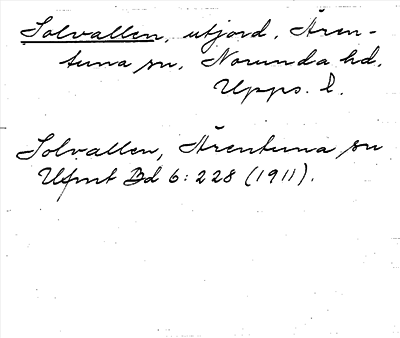 Solvallen, utjord, Ären-
tuna sn, Norunda hd.
Upps. l.
Solvallen, Ärentuna sn
Ufmt Bd 6:228 (1911).